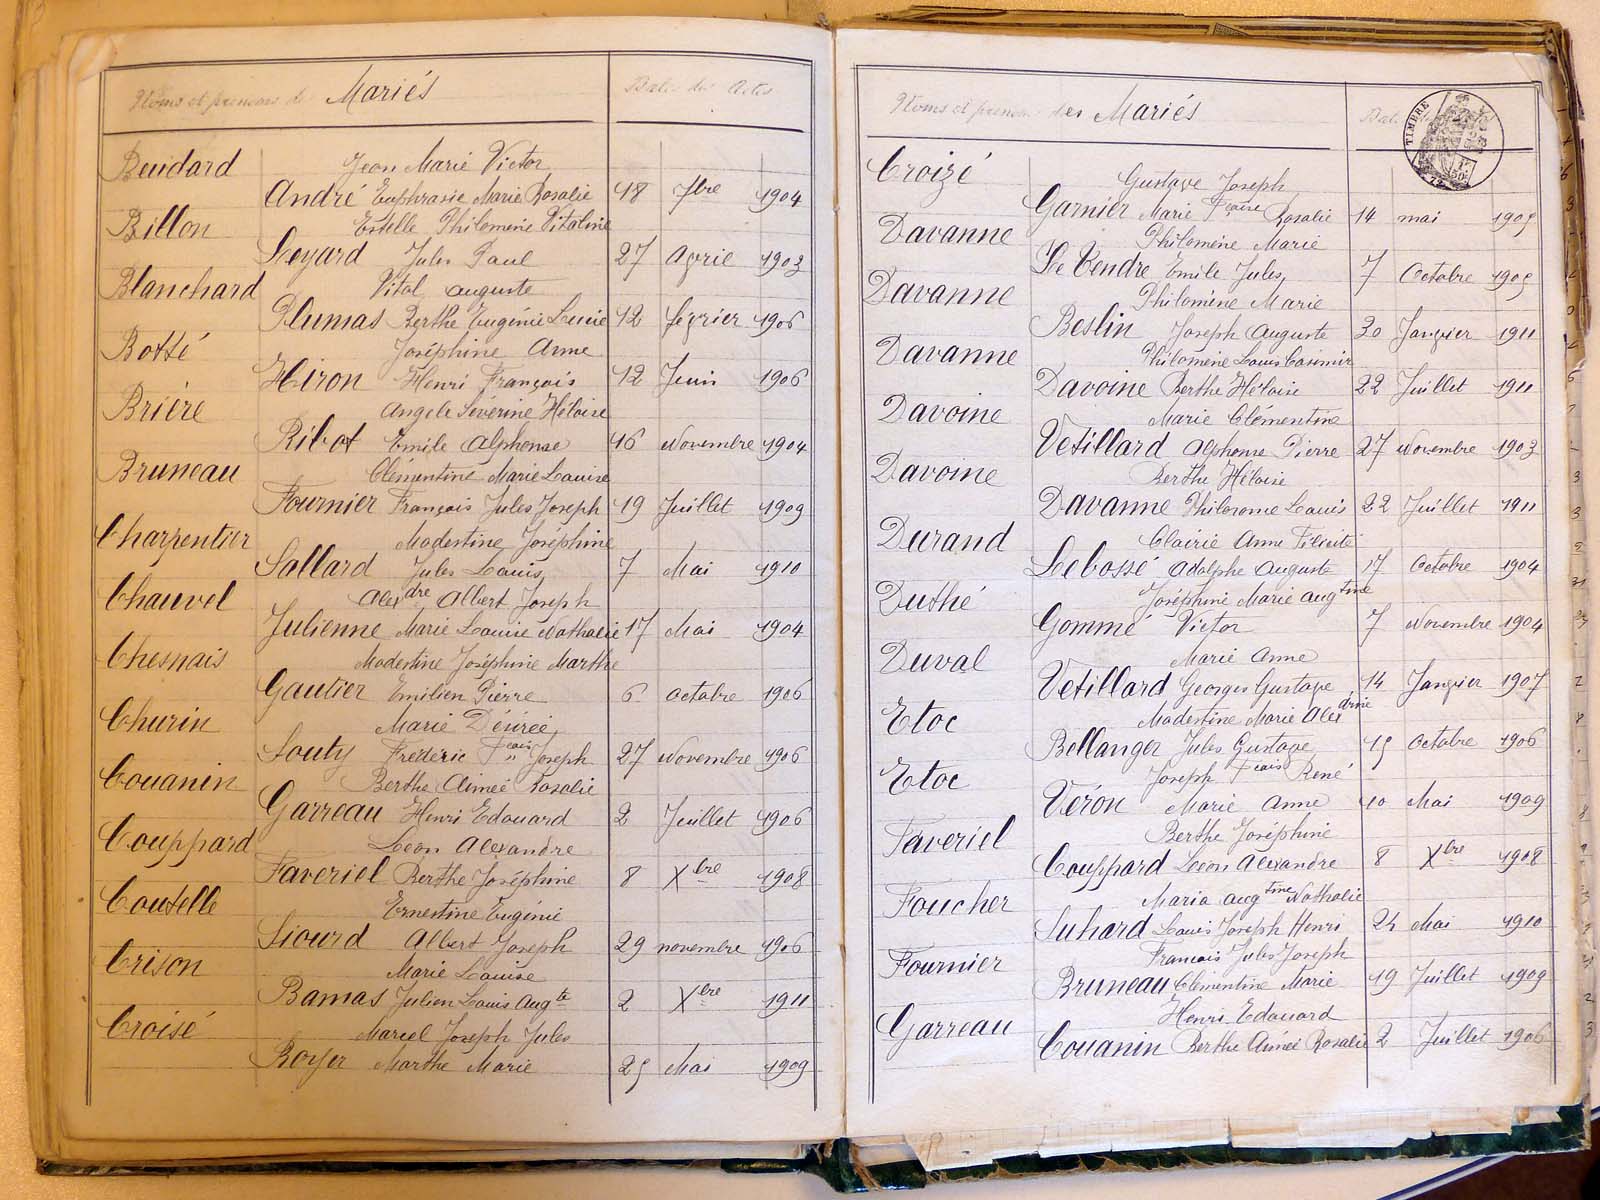 Noms et prénoms des Mariés Dates des Actes
Beudard Jean Marie Victor
André Euphrasie Marie Rosalie 18 7bre 1904
Billon Estelle Philomène Vitaline
Leyard Jules Paul 27 Avril 1903
Blanchard Vital Auguste
Plumas Berthe Eugénie Lucie 12 février 1906
Bossé Joséphine Anne
Hiron Henri François 12 Juin 1906
Brière Angele Séverine Héloise
Ribot Emile Alphonse 16 Novembre 1904
Bruneau Clémentine Marie Louise
Fournier François Jules Joseph 19 Juillet 1909
Charpentier Modestine Joséphine
Sallard Jules Louis 7 Mai 1910
Chauvel Alexdre Albert Joseph
Julienne Marie Louise Nathalie 17 Mai 1904
Chesnais Modestine Joséphine Marthe
Gautier Emilien Pierre 6 Octobre 1906
Churin Marie Désirée
Souty Frédéric Fcois Joseph 27 Novembre 1906
Couanin Berthe Aimée Rosalie
Garreau Henri Edouard 2 Juillet 1906
Couppard Léon Alexandre
Faveriel Berthe Joséphine 8 Xbre 1908
Coutelle Ernestine Eugénie
Siourd Albert Joseph 29 novembre 1906
Crison Marie Louise
Bamas Julien Louis Augte 2 Xbre 1911
Croisé Marcel Joseph Jules
Royer Marthe Marie 25 Mai 1909
Noms et prénoms des Mariés Dat
TIMBRE
Croizé Gustave Joseph
Garnier Marie Fcoise Rosalie 14 mai 1905
Davanne Philomène Marie
Le Tendre Emile Jules 7 Octobre 1905
Davanne Philomène Marie
Beslin Joseph Auguste 30 Janvier 1911
Davanne Philomène Louis Casimir
Davoine Berthe Héloise 22 Juillet 1911
Davoine Marie Clémentine
Vetillard Alphonse Pierre 27 Novembre 1903
Davoine Berthe Héloise
Davanne Philorome Louis 22 Juillet 1911
Durand Clairie Anne Félicité
Lebossé Adolphe Auguste 17 Octobre 1904
Duthé Joséphine Marie Augtine
Gommé Victor 7 Novembre 1904
Duval Marie Anne
Vetillard Georges Gustave 14 Janvier 1907
Etoc Modestine Marie Alexdrine
Bellanger Jules Gustave 15 Octobre 1906
Etoc Joseph Fcois René
Véron Marie Anne 10 Mai 1909
Faveriel Berthe Joséphine
Couppard Léon Alexandre 8 Xbre 1908
Foucher Maria Augtine Nathalie
Suhard Louis Joseph Henri 24 Mai 1910
Fournier Francois Jules Joseph
Bruneau Clémentine Marie 19 Juillet 1909
Garreau Henri Edouard
Couanin Berthe Aimée Rosalie 2 Juillet 1906